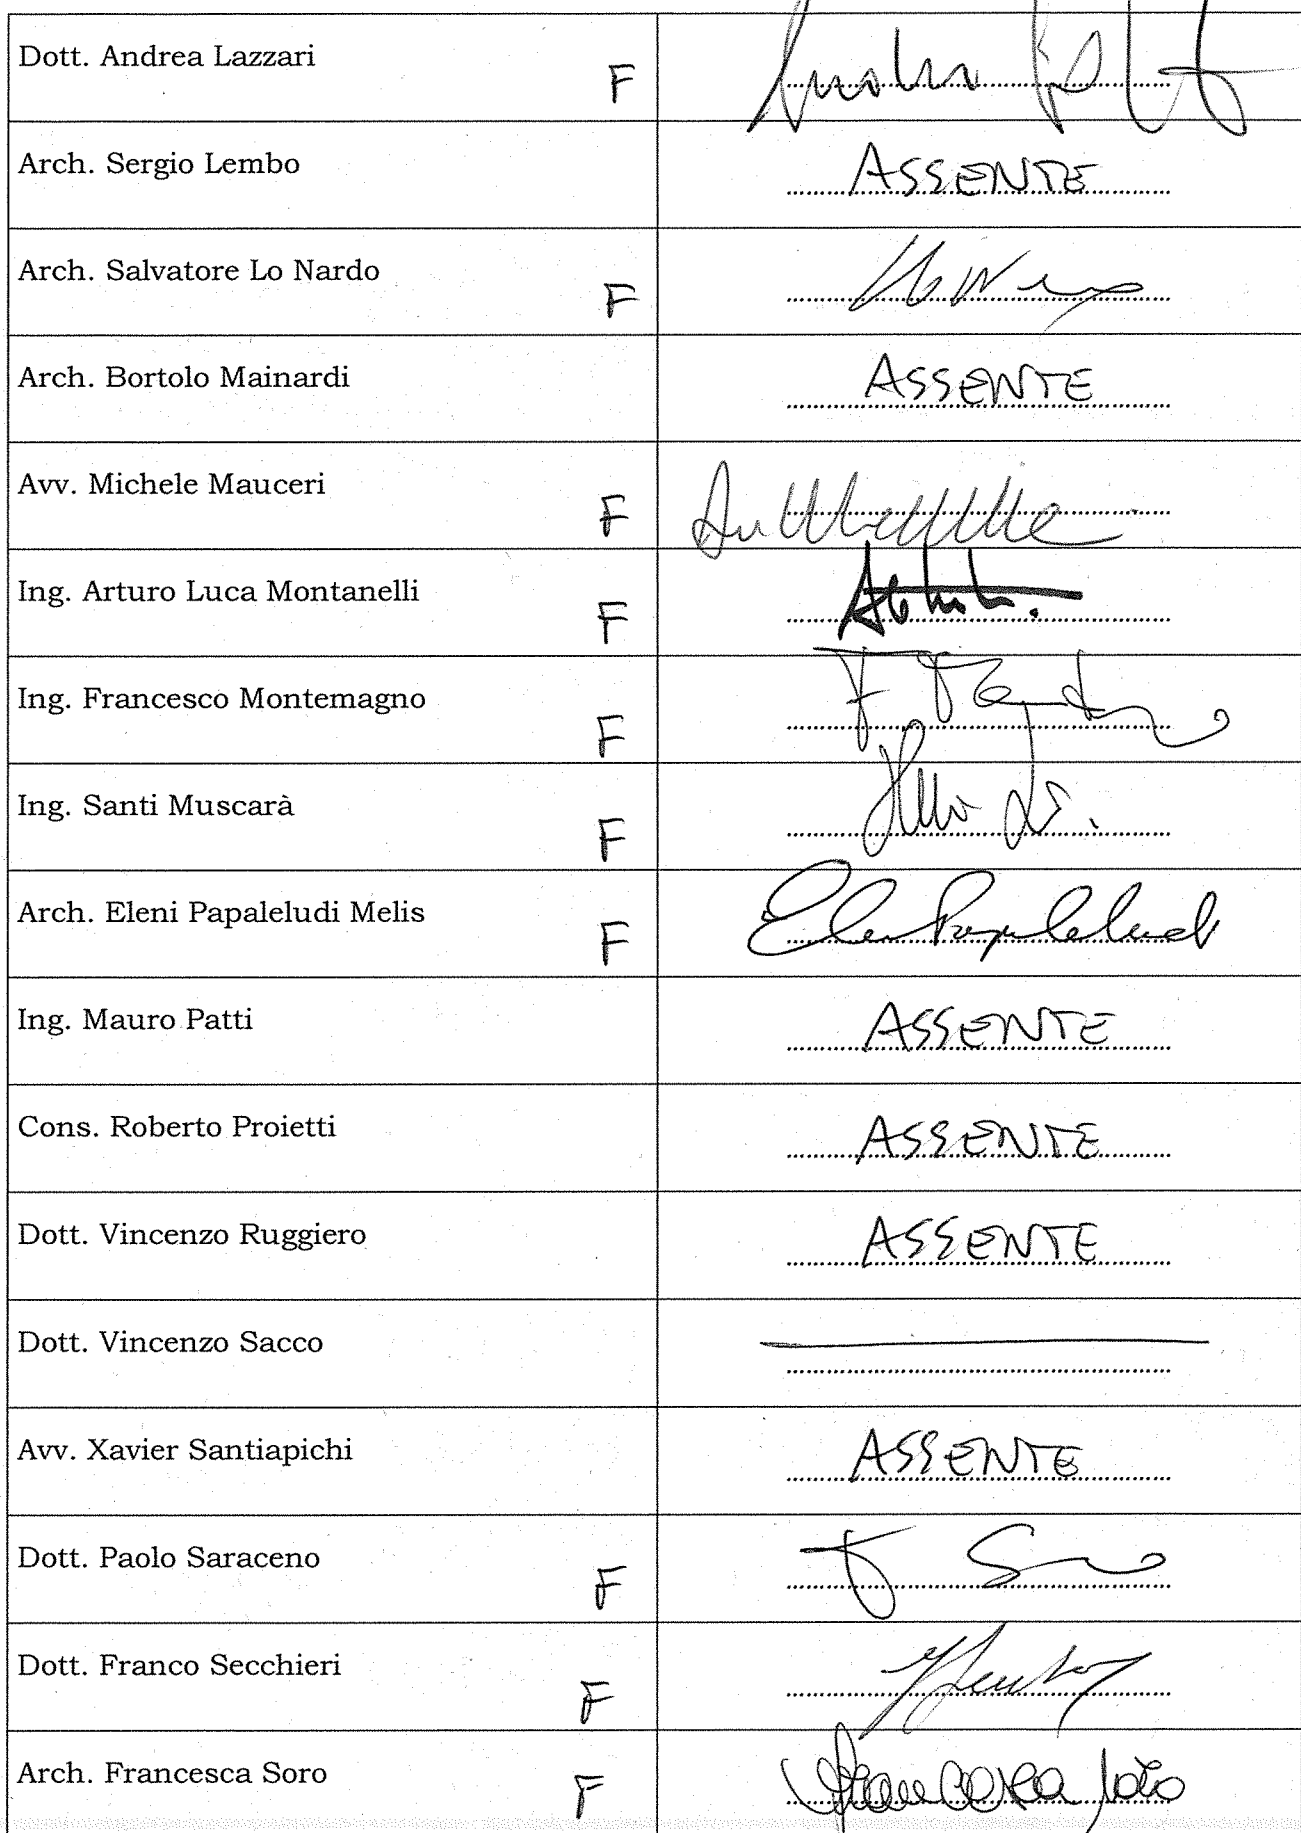 Dott. Andrea Lazzari F
Arch. Sergio Lembo ASSENTE
Arch. Salvatore Lo Nardo F
Arch. Bortolo Mainardi ASSENTE
Avv. Michele Mauceri F
Ing. Arturo Luca Montanelli F
Ing. Francesco Montemagno F
Ing. Santi Muscarà F
Arch. Eleni Papaleludi Melis F
Ing. Mauro Patti ASSENTE
Cons. Roberto Proietti ASSENTE
Dott. Vincenzo Ruggiero ASSENTE
Dott. Vincenzo Sacco
Avv. Xavier Santiapichi ASSENTE
Dott. Paolo Saraceno F
Dott. Franco Secchieri F
Arch. Francesca Soro F Francesca Soro